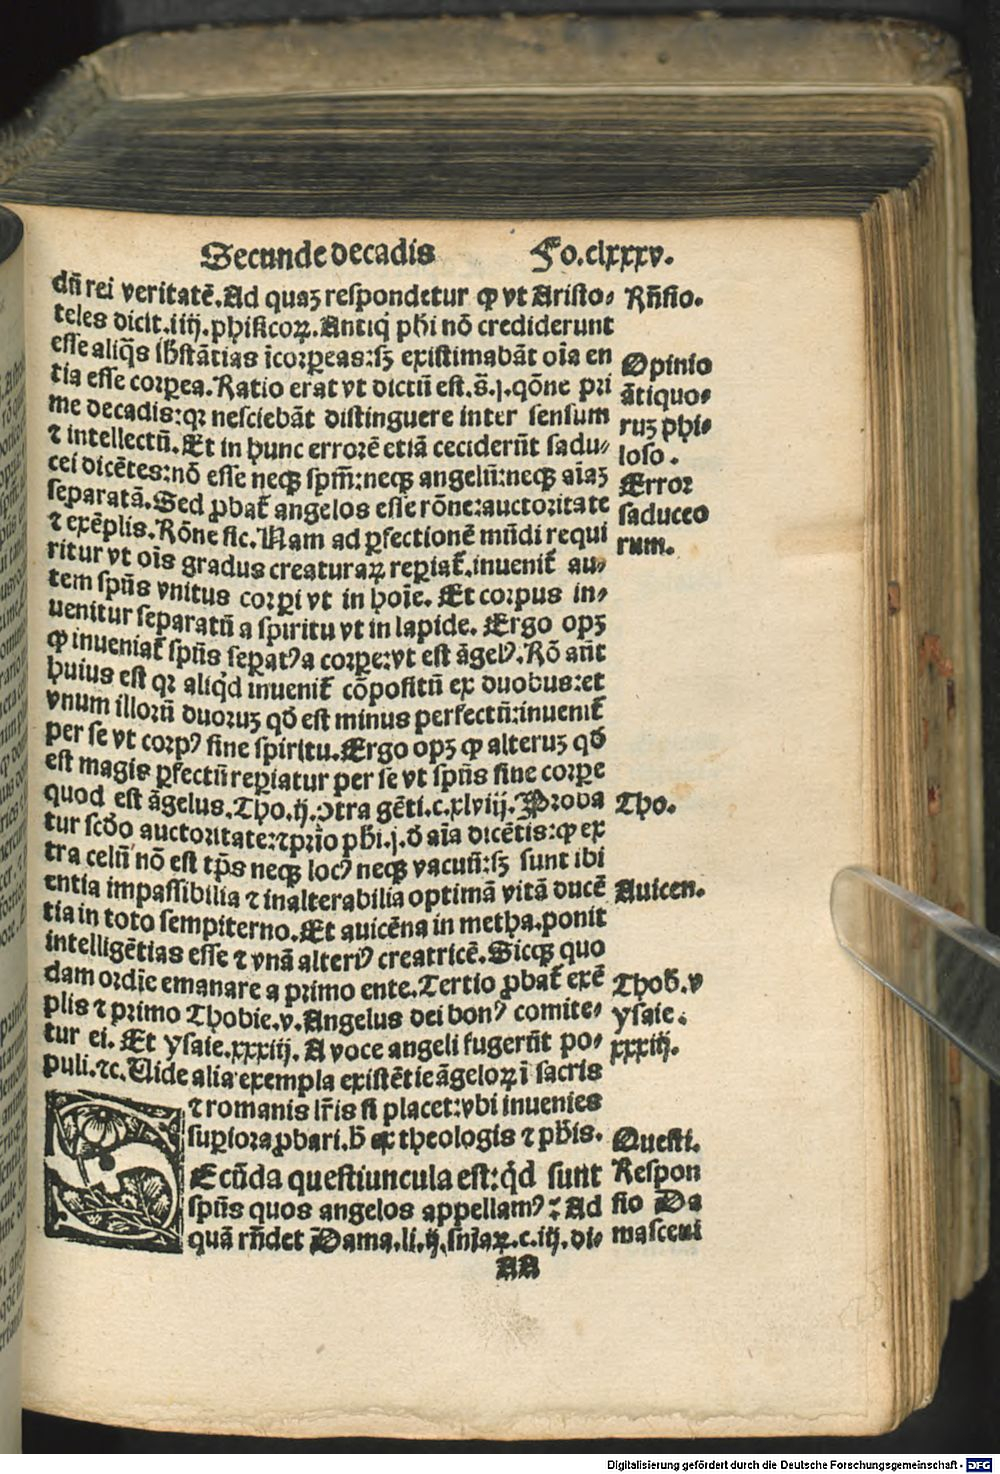 Secunde decadis Fo.clxxxv.
dū rei veritatē. Ad quaꝫ respondetur ꝙ vt Aristo⸗ Rn̄sio.
teles dicit.iiij.phisicoꝝ. Antiq̇ phi nō crediderunt
esse aliq̄s sb̄stātias īcorpeas:sꝫ existimabāt oīa en Opinio
tia esse corpea. Ratio erat vt dictū est.s̄.j.qōne pri ātiquo⸗
me decadis:qꝛ nesciebāt distinguere inter sensum ruꝫ phi⸗
⁊ intellectū. Et in hunc errorē etiā ceciderūt sadu⸗ loso.
cei dicētes:nō esse neqꝫ spm̄:neqꝫ angelū:neqꝫ aīaꝫ Error
separatā. Sed ꝓbat̄ angelos esse rōne:auctoritate saduceo
⁊ exēplis. Rōne sic. Nam ad ꝑfectionē mūdi requi rum.
ritur vt oīs gradus creaturaꝝ reꝑiat̄.inuenit̄ au⸗
tem spūs vnitus corꝑi vt in hoīe. Et corpus in⸗
uenitur separatū a spiritu vt in lapide. Ergo opꝫ
ꝙ inueniat̄ spūs seꝑatꝰ a corꝑe:vt est āgelꝰ. Rō an̄t
huius est qꝛ aliq̇d inuenit̄ cōpositū ex duobus:et
vnum illorū duoruꝫ qd̄ est minus perfectū:inuenit̄
per se vt corpꝰ sine spiritu. Ergo opꝫ ꝙ alteruꝫ qd̄
est magis ꝑfectū reꝑiatur per se vt spūs sine corꝑe
quod est āgelus. Tho.ij.ↄtra gēti.c.xlviij. Proba Tho.
tur scd̄o auctoritate:⁊ prīo phi.j.d̄ aīa dicētis:ꝙ ex
tra celū nō est tp̄s neqꝫ locꝰ neqꝫ vacuū:sꝫ sunt ibi
entia impassibilia ⁊ inalterabilia optimā vitā ducē Auicen.
tia in toto sempiterno. Et auicēna in metha.ponit
intelligētias esse ⁊ vnā alteriꝰ creatricē. Sicqꝫ quo
dam ordīe emanare a primo ente. Tertio ꝓbat̄ exē Thob̄.v
plis ⁊ primo Thobie.v. Angelus dei bonꝰ comite⸗ ysaie.
tur ei. Et ysaie.xxxiij. A voce angeli fugerūt po⸗ xxxiij.
puli.⁊c. Uide alia exempla existētie āgeloꝝ ī sacris
⁊ romanis lr̄is si placet:vbi inuenies
suꝑiora ꝓbari.h̄ ex theologis ⁊ phīs. Questi.
SEcūda questiuncula est:q̇d sunt Respon
spūs quos angelos appellamꝰ: Ad sio Da
quā rn̄det Dama.li.ij.sn̄iaꝝ.c.iij.di⸗ masceni
AA
Digitalisierung gefördert durch die Deutsche Forschungsgemeinschaft - DFG